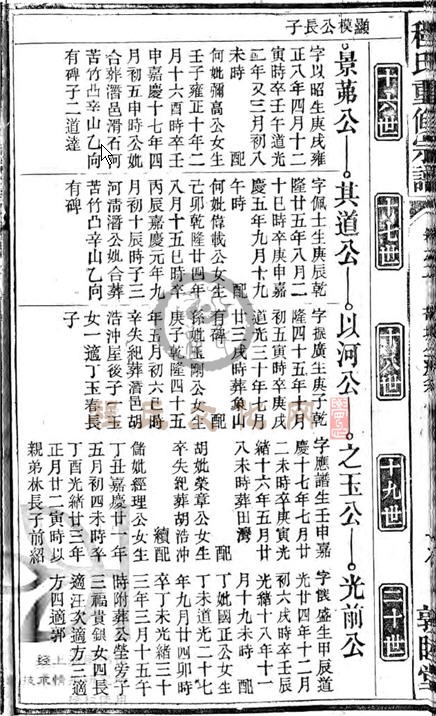 程氏重修宗譜
十六世
十七世
十八世
十九世
二十世
顯模公長子
景茀公 其道公 以河公 之玉公 光前公
字以昭生庚戌雍
正八年四月十二
寅時卒壬午道光
二年又三月初八
未時 配
何妣彌高公女生
壬子雍正十年二
月十六酉時卒壬
申嘉慶十七年四
月初五申時公妣
合葬潛邑滑石河
苦竹凸辛山乙向
有碑子二道逵
字佩士生庚辰乾
隆廿五年八月二
十巳時卒庚申嘉
慶五年九月十九
午時 配
何妣偉載公女生
己卯乾隆廿四年
八月十五巳時卒
丙辰嘉慶元年九
月初十辰時子三
河清潛公妣合葬
苦竹凸辛山乙向
有碑
字振廣生庚子乾
隆四十五年十月
初五寅時卒庚戌
道光三十年七月
廿三戌時葬象山
有碑 配
孫妣玉剛公女生
庚子乾隆四十五
年五月初六巳時
辛失紀葬潛邑胡
浩沖屋後子之玉
女一適丁玉春長
子
字應譜生壬申嘉
慶十七年七月廿
二未時卒庚寅光
緒十六年五月廿
八未時葬田灣
配
胡妣榮章公女生
卒失紀葬胡浩沖
續配
儲妣經理公女生
丁丑嘉慶廿二年
五月初四未時卒
丁酉光緒廿三年
正月廿二寅時以
親弟林長子前紹
盛生甲辰道
光廿四年十二月
初六戌時卒壬辰
光緒十八年十一
月十九未時 配
丁妣國正公女生
丁未道光二十七
年九月廿四卯時
卒丁未光緒三十
三年三月十五午
時附葬公塋旁子
三福貴銀女四長
適汪次適方三適
方四適郭